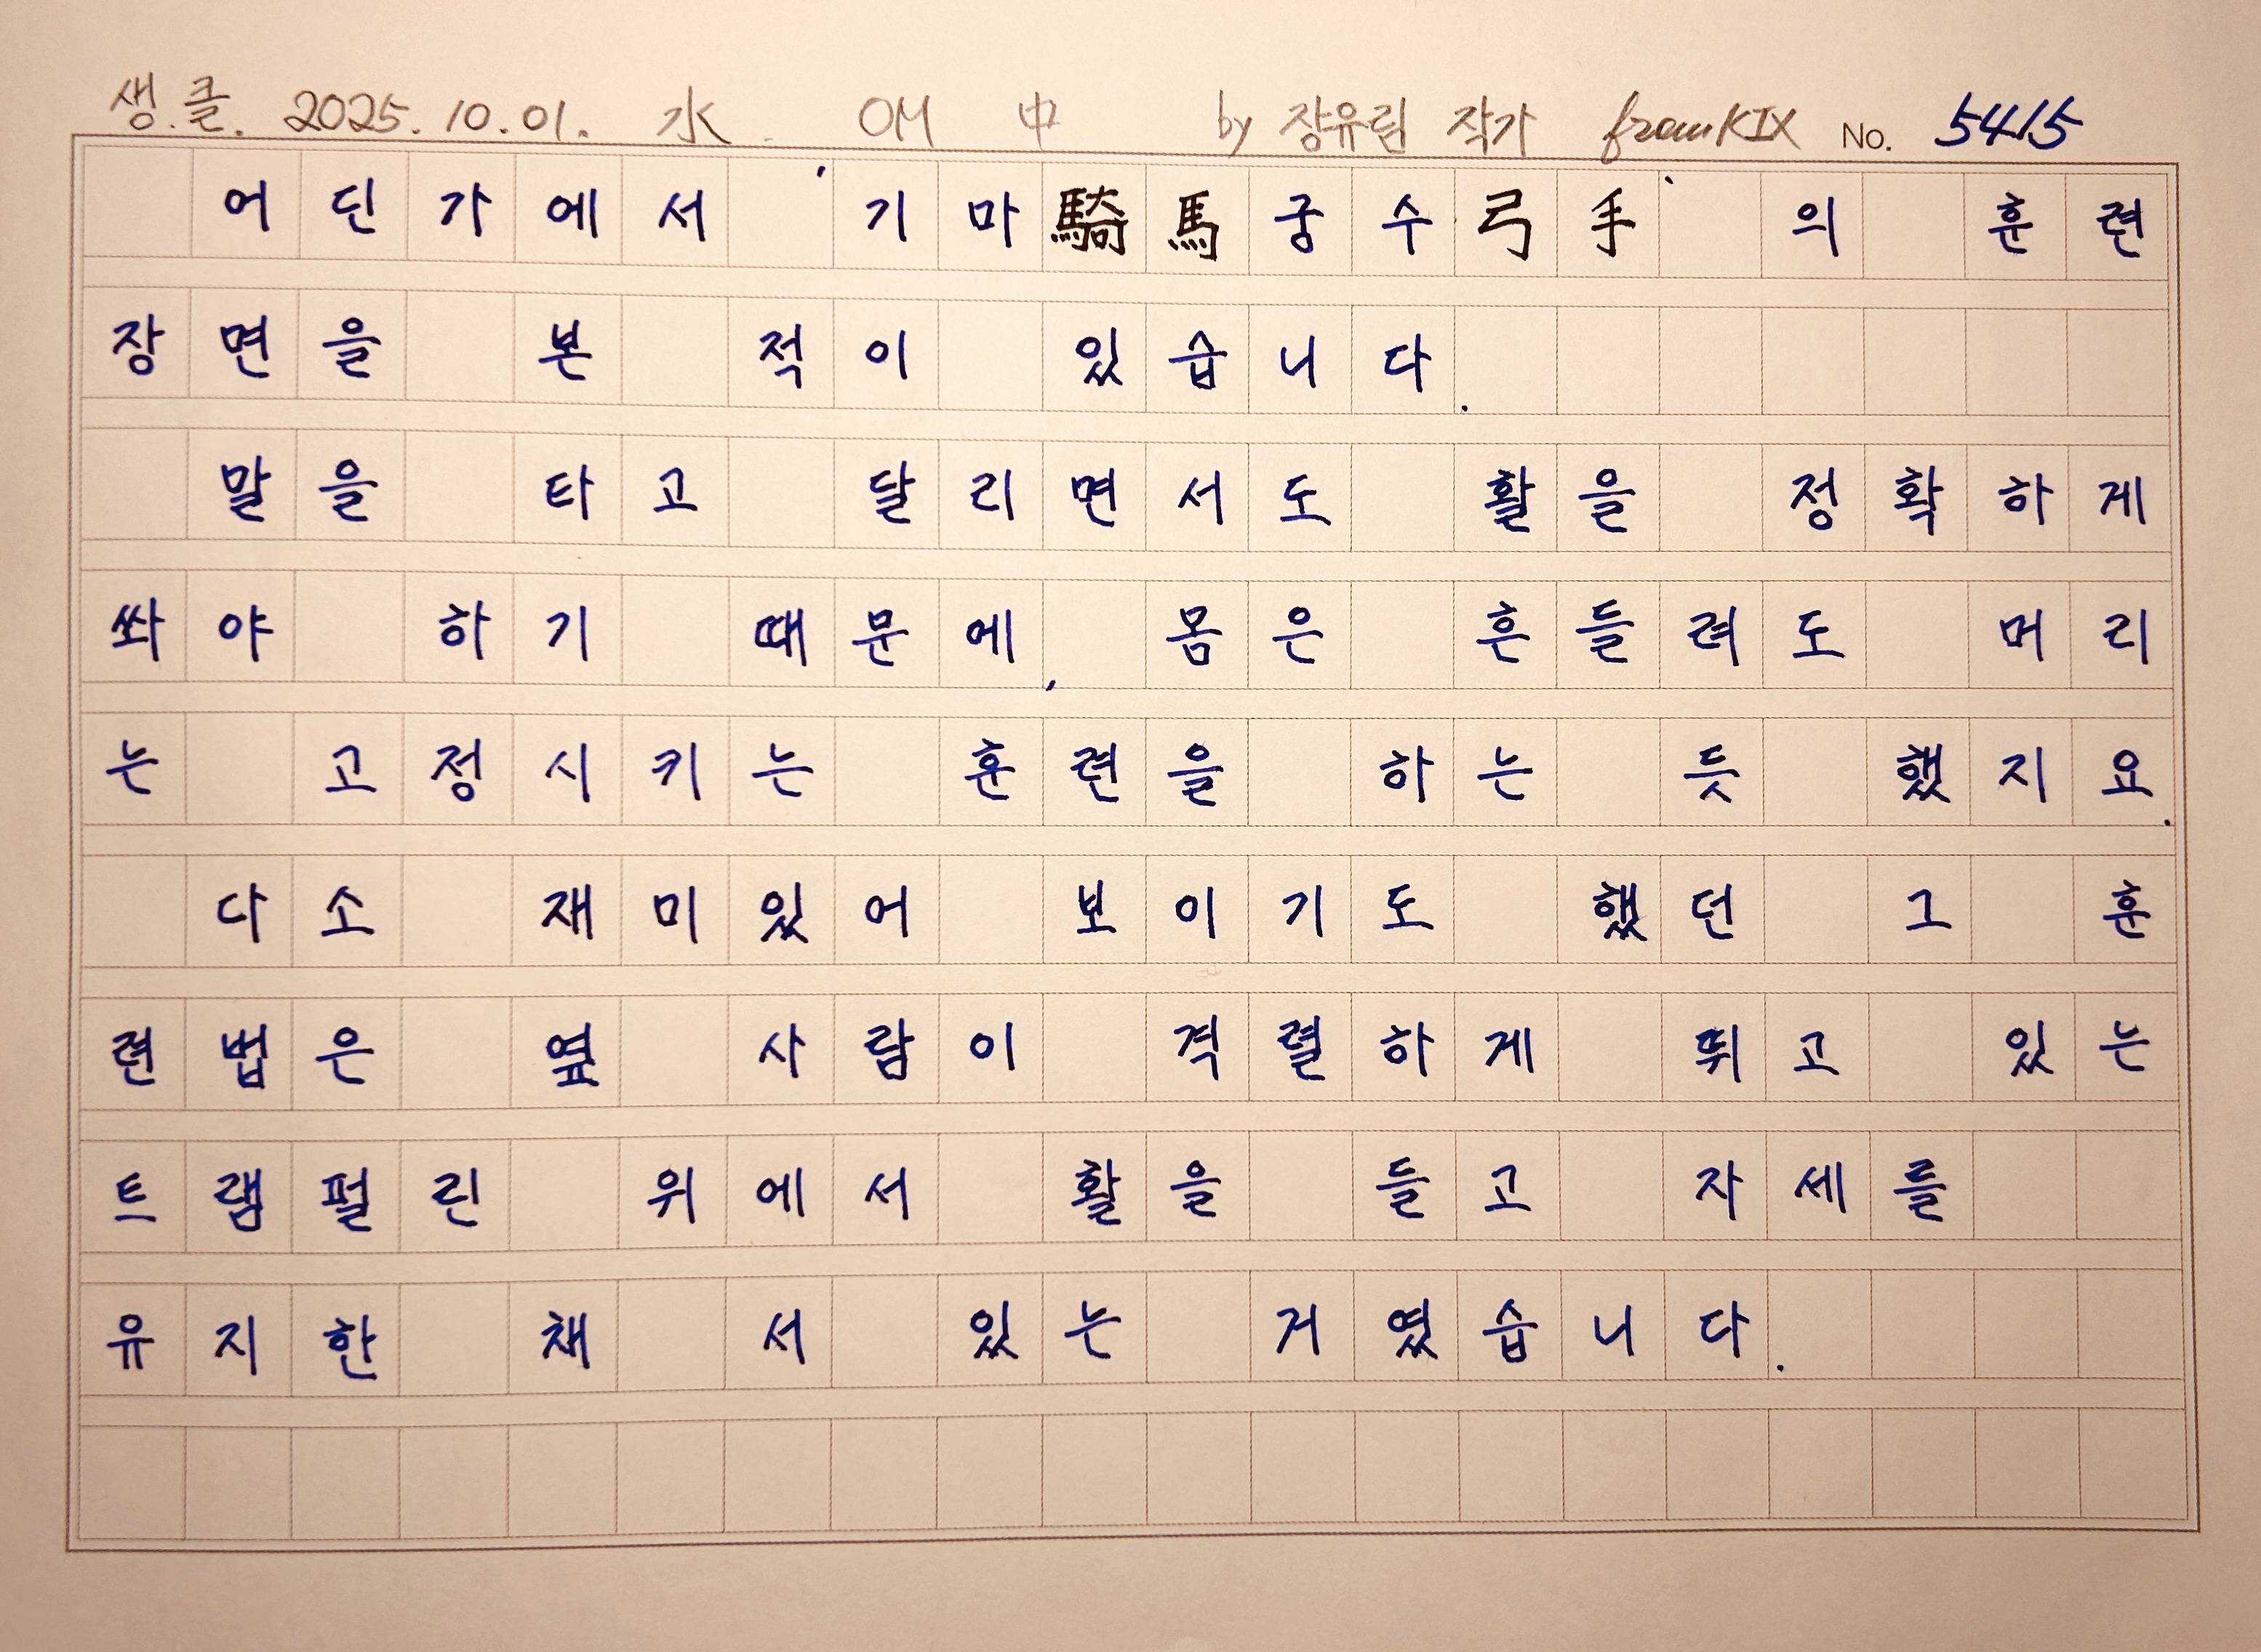 생.클. 2025. 10. 01. 水 OM 中 by 장유림 작가 from KIX No. 5415
어딘가에서 '기마騎馬궁수弓手'의 훈련
장면을 본 적이 있습니다.
말을 타고 달리면서도 활을 정확하게
쏴야 하기 때문에, 몸은 흔들려도 머리
는 고정시키는 훈련을 하는 듯 했지요.
다소 재미있어 보이기도 했던 그 훈
련법은 옆 사람이 격렬하게 뛰고 있는
트램펄린 위에서 활을 들고 자세를
유지한 채 서 있는 거였습니다.